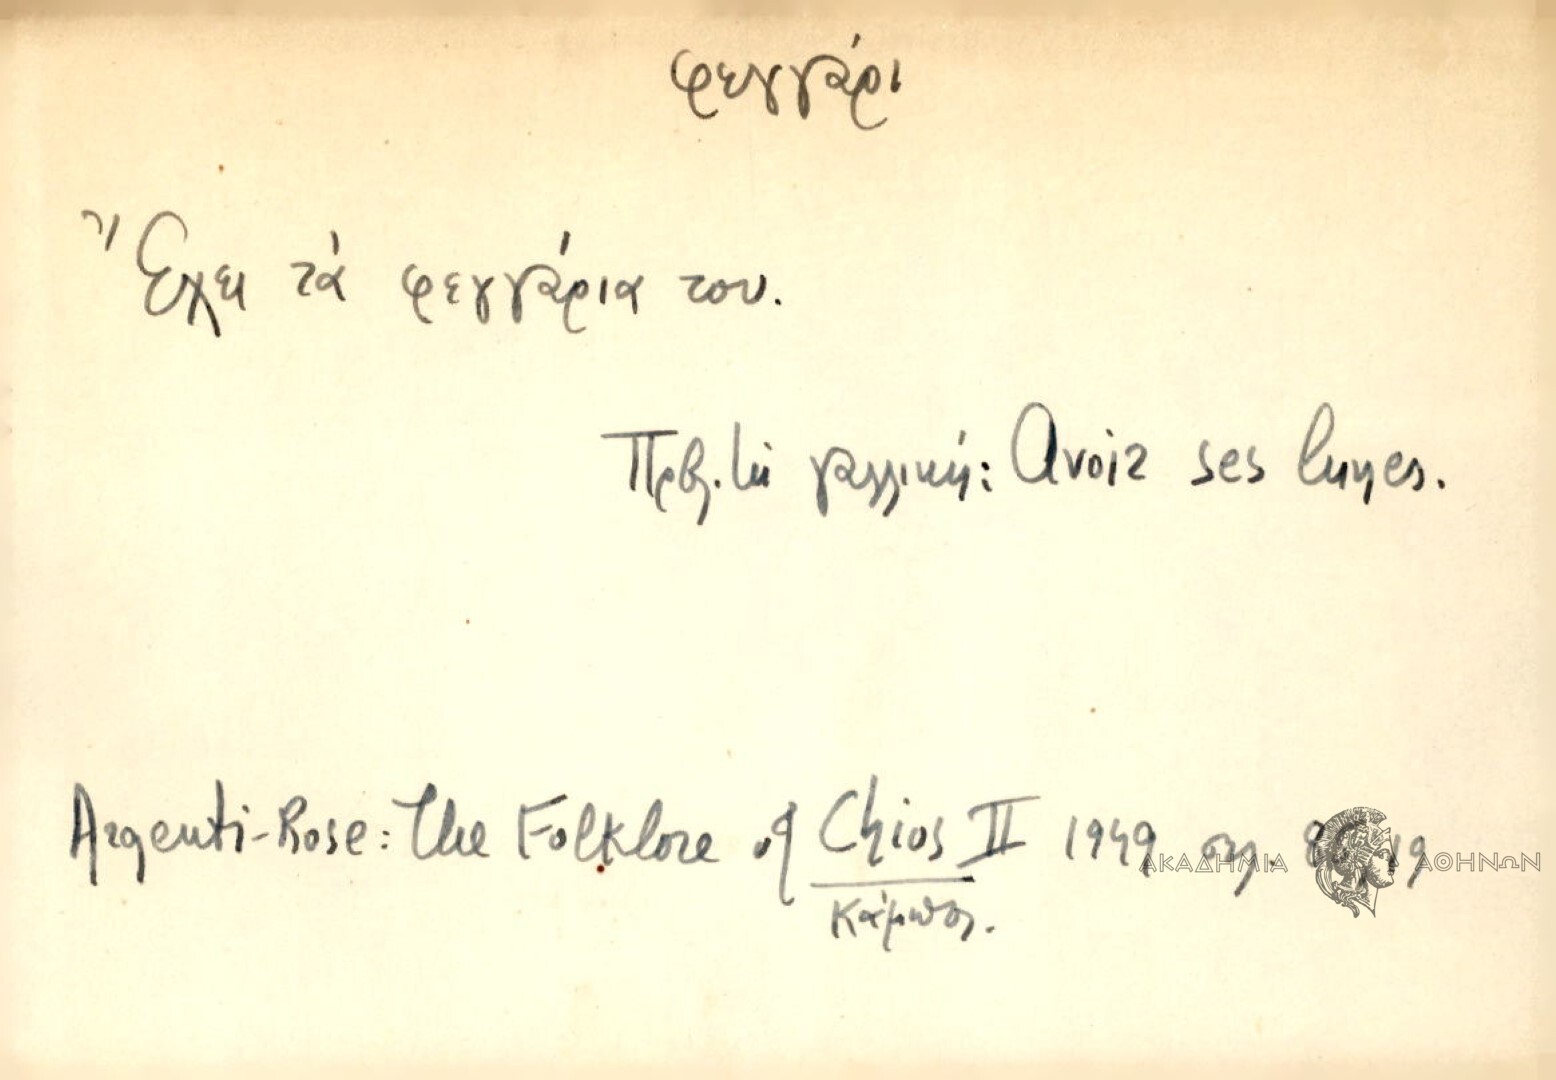 φεγγάρι
Ἔχει τά φεγγάρια του.
Πρβλ. τή γαλλική: Avoir ses lunes.
Argenti-Rose: The Folklore of Chios II 1949 σελ.
Κάμπος.
ΑΚΑΔΗΜΙΑ ΑΘΗΝΩΝ